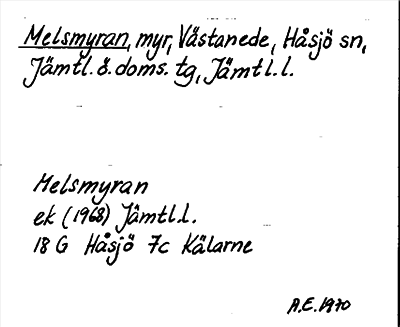 Melsmyran, myr, Västanede, Håsjö sn,
Jämtl. ö. doms. tg, Jämtl.l.
Melsmyran
ek (1968) Jämtl.l.
18 G Håsjö 7c Kälarne
A.E. 1970